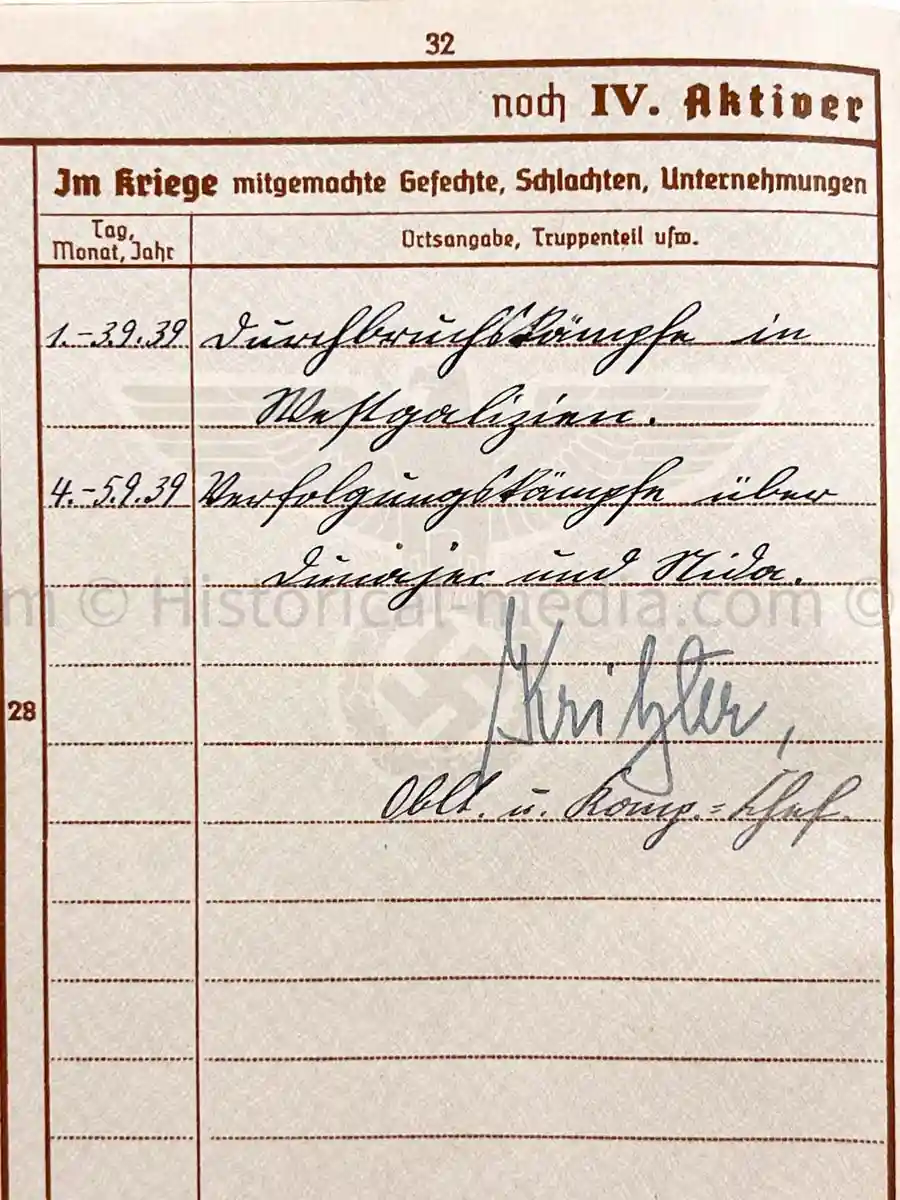 32
noch IV. Aktiver
Im Kriege mitgemachte Gefechte, Schlachten, Unternehmungen
Tag, Monat, Jahr
Ortsangabe, Truppenteil usw.
1.–3.9.39 Durchbruchskämpfe in
Westgalizien.
4.–5.9.39 Verfolgungskämpfe über
Dunajec und Nida.
om © Historical-media.com ©
Kritzler,
28
Oblt. u. Komp.=Chef.